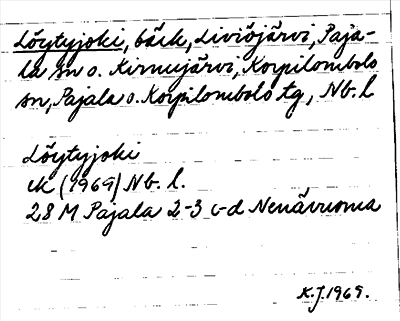 Löytyjoki, bäck, Liviöjärvi, Paja-
la sn o. Kirnujärvi, Korpilombolo
sn, Pajala o. Korpilombolo tg, Nb. l
Löytyjoki
ek (1969) Nb. l.
28 M Pajala 2-3 c-d Nenävuoma
K.J. 1969.